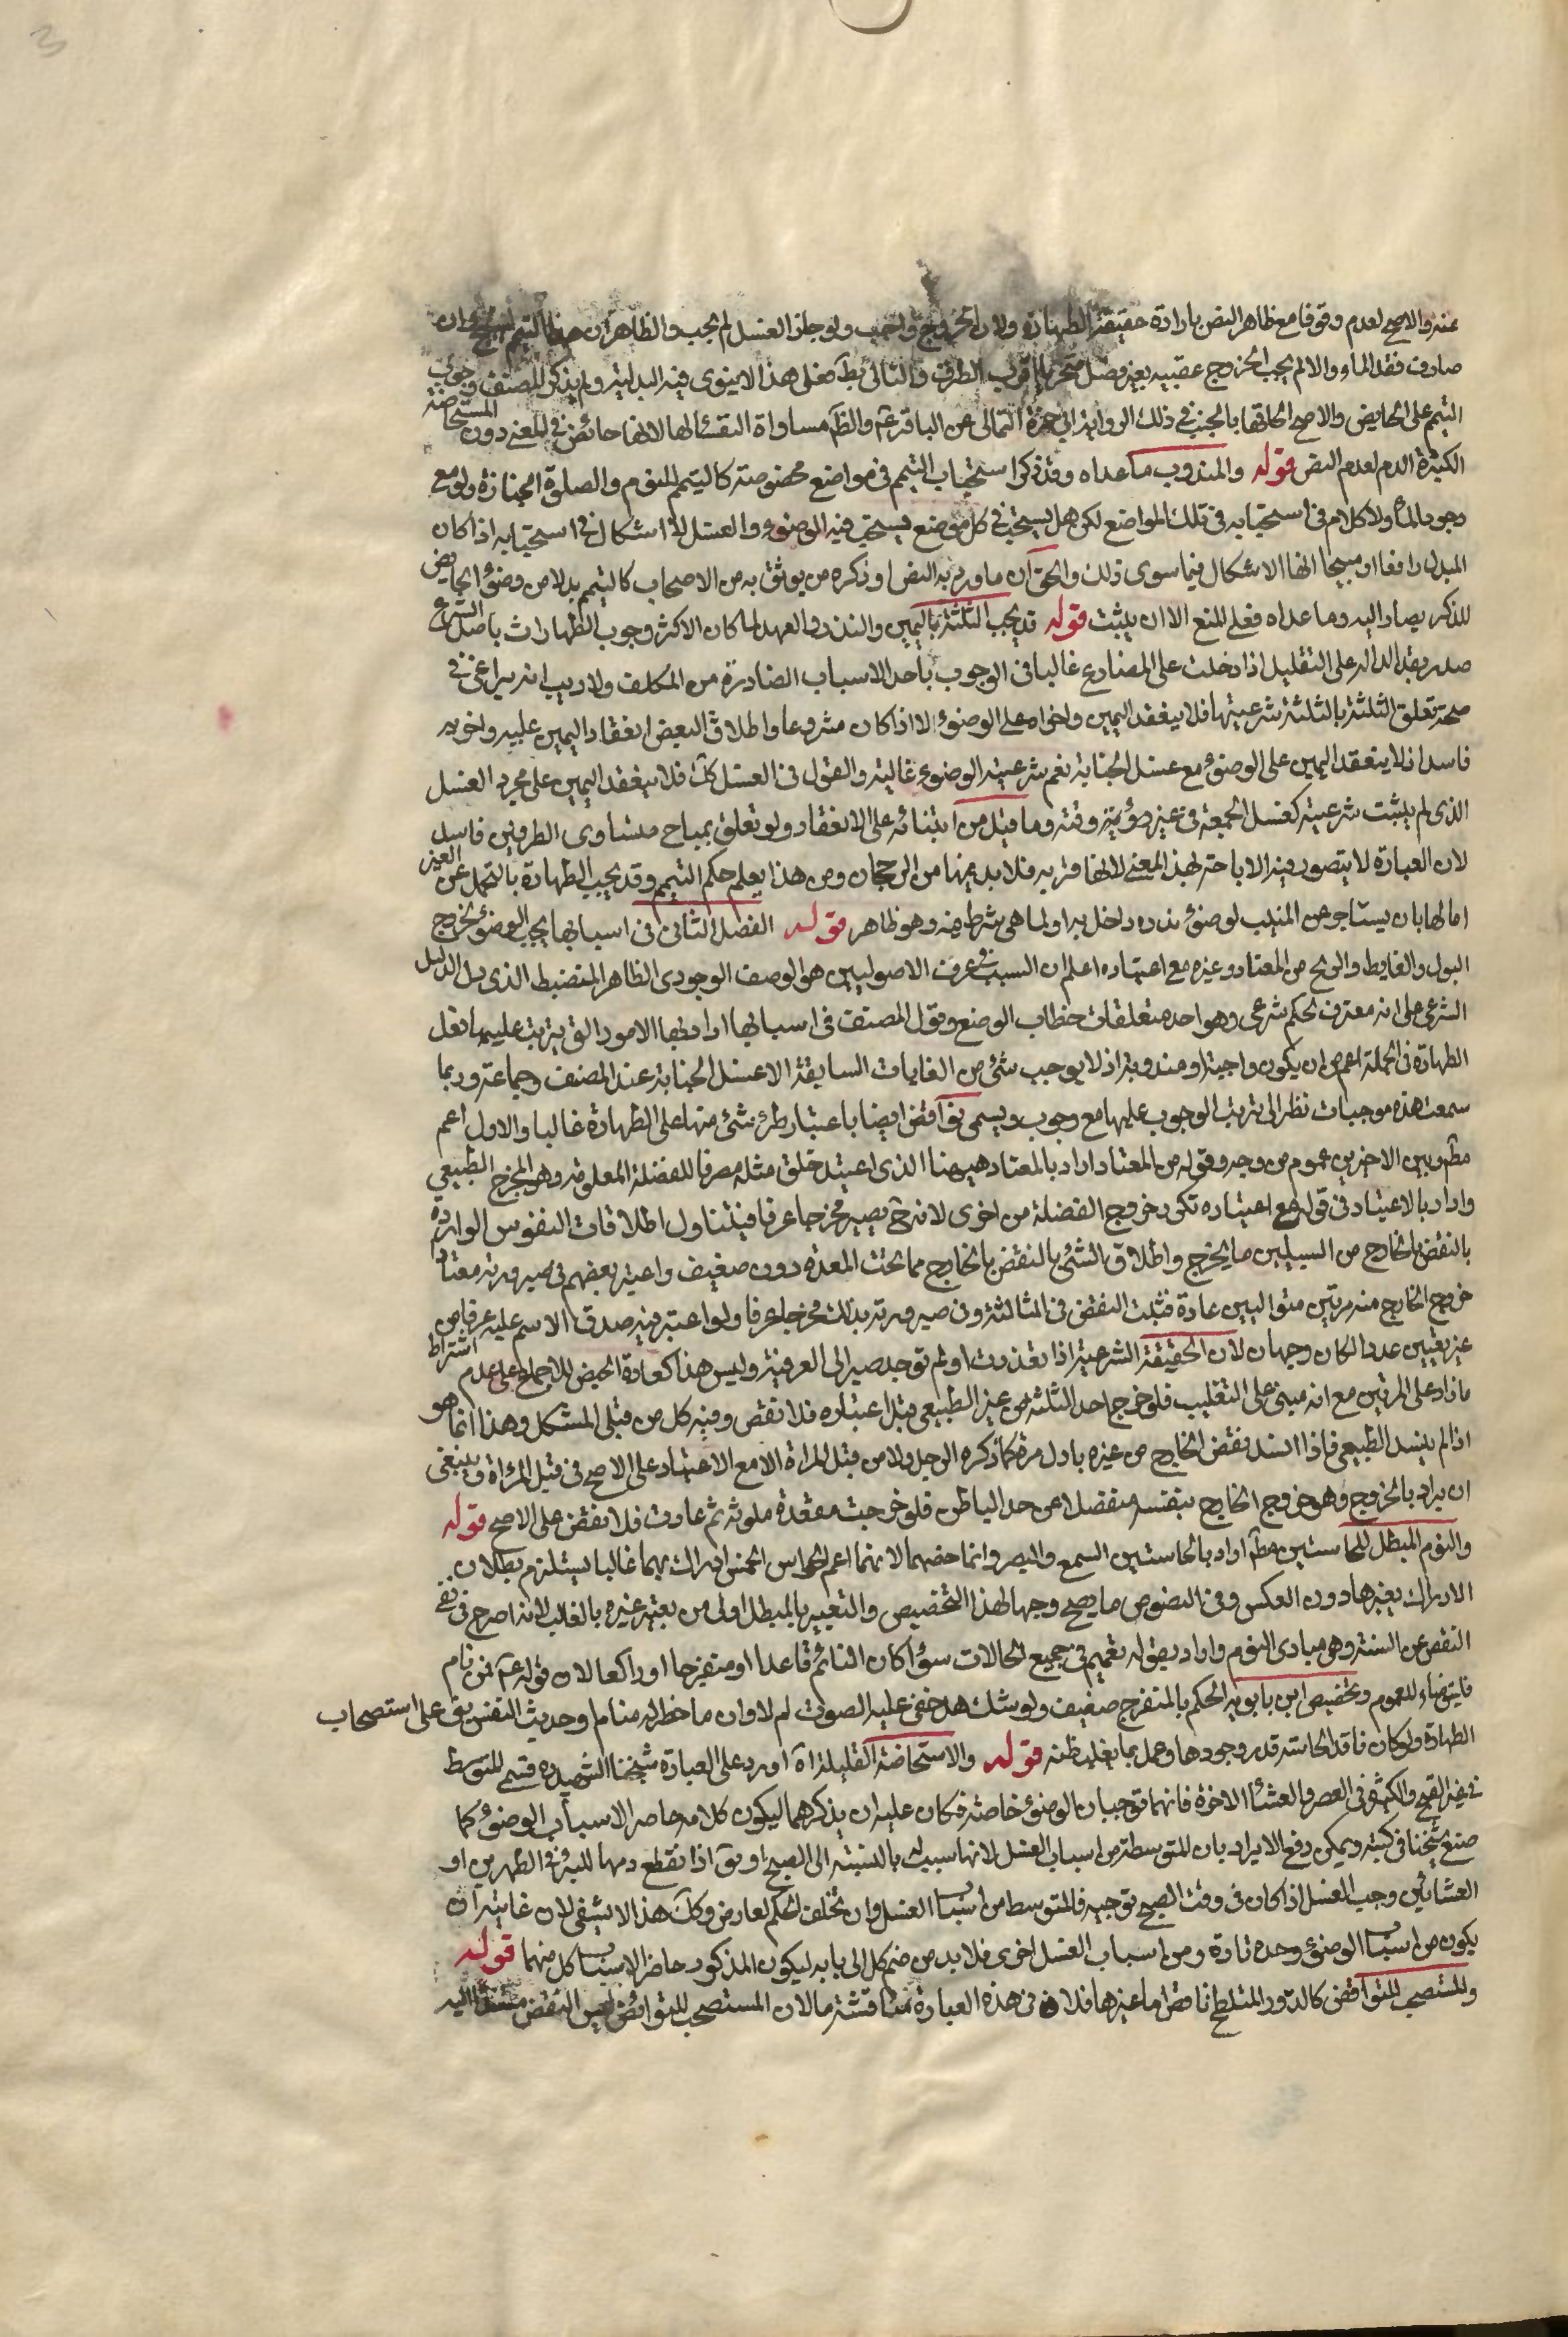 3
عنه والاصح لعدم وقوفا مع ظاهر النص بارادة حقيقة الطهارة ولان الخروج واجب ولو جاز الغسل لم يجب والظاهر ان هذا التيمم وان
صادف فقد الماء والا لم يجب الخروج عقيبه بغير فصل متحريا اقرب الطرق والتالى بط فعلى هذا لا ينوى فيه البدلية ولم يذكر المصنف وجوب
التيمم على الحايض والاصح الحاقها بالجنب فى ذلك لرواية ابى حمزة الثمالى عن الباقر ع والظ مساواة النفساء لها لانها حائض فى المعنى دون المستحاضة
الكثيرة الدم لعدم النص قوله والمندوب ما عداه وقد ذكرا استحباب التيمم فى مواضع مخصوصة كالتيمم للنوم والصلوة الجنازة ولو مع
وجود الماء ولا كلام فى استحبابه فى تلك المواضع لكن هل يستحب فى كل موضع يستحب فيه الوضوء والغسل لا اشكال فى استحبابه اذا كان
المبدل رافعا او مبيحا انما الاشكال فيما سوى ذلك والحق ان ما ورد به النص او ذكره من يوثق به من الاصحاب كالتيمم بدلا من وضوء الحايض
للذكر يصار اليه وما عداه فعلى المنع الا ان يثبت قوله قد يجب الثلثة باليمين والنذر والعهد لما كان الاكثر وجوب الطهارات باصل الشرع
صدر بقد الدالة على التقليل اذا دخلت على المضارع غالبا فى الوجوب باحد الاسباب الصادرة من المكلف ولا ريب انه يراعى فى
صحة تعلق الثلثة بالثلثة شرعيتها فلا ينعقد اليمين واخواه على الوضوء الا اذا كان مشروعا واطلاق البعض انعقاد اليمين عليه واخويه
فاسد اذ لا ينعقد اليمين على الوضوء مع غسل الجنابة نعم شرعية الوضوء غالبة والقول فى الغسل كك فلا ينعقد اليمين على مجرد الغسل
الذى لم يثبت شرعيته كغسل الجمعة فى غير يومه وقته وما قيل من ابتنائه على الانعقاد ولو تعلق بمباح متساوى الطرفين فاسد
لان العبادة لا يتصور فيه الاباحة لهذا المعنى لانها قربه فلا بد فيها من الرجحان ومن هذا يعلم حكم التيمم وقد يجب الطهارة بالتحمل عن الغير
اما لها بان يستاجر عن الميت لوضوء نذره داخل به او لما هى شرط فيه وهو ظاهر قوله الفصل الثانى فى اسبابها يجب الوضوء بخروج
البول والغايط والريح من المعتاد وغيره مع اعتياده اعلم ان السبب فى عرف الاصوليين هو الوصف الوجودى الظاهر المنضبط الذى دل الدليل
الشرعى على انه معرف لحكم شرعى وهو احد متعلقات خطاب الوضع وقول المصنف فى اسبابها اراد بها الامور التى يترتب عليها فعل
الطهارة فى الجملة اعم من ان يكون واجبة او مندوبة اذ لا يوجب شئ من الغايات السابقة الا غسل الجنابة عند المصنف وجماعة وربما
سمعت هذه موجبات نظرا الى ترتب الوجوب عليها مع وجوب ويسمى نواقض ايضا باعتبار طرئ شئ منها على الطهارة غالبا والاول اعم
مط وبين الاخيرين عموم من وجه وقوله من المعتاد اراد بالمعتاد هيهنا الذى اعتيد خلق مثله مصرفا للفضلة المعلومة وهو المخرج الطبيعى
واراد بالاعتياد فى قوله مع اعتياده تكرر خروج الفضلة من اخرى لانه ح يصير مخرجا عرفا فيتناول اطلاقات النصوص الواردة
بالنقض بالخارج من السبيلين ما يخرج واطلاق الشئ بالنقض بالخارج مما تحت المعدة دون ضعيف واعتبر بعضهم فى صيرورته معتادا
خروج الخارج منه مرتين متواليين عادة فثبت النقض فى الثالثة وفى صيرورته بذلك مخرجا عرفا ولو اعتبر فيه صدق الاسم عليه عرفا من
غير تعيين عدد لكان وجها لان الحقيقة الشرعية اذا تعذرت او لم توجد صير الى العرفية وليس هذا كعادة الحيض للاجماع على عدم اشتراط
ما زاد على المرتين مع انه مبنى على التغليب فلو خرج احد الثلثة من غير الطبيعى قبل اعتياده فلا نقض وفيه كل من قبلى المشكل وهذا انما هو
اذا لم ينسد الطبيعى فاذا انسد نقض الخارج من غيره باول مرة كما ذكره الرجل ولا من قبل المراة الا مع الاعتياد على الاصح فى قبل المرأة وينبغى
ان يراد بالخروج وهو خروج الخارج بنفسه منفصلا عن حد الباطن فلو خرجت مقعدة ملوثة ثم عادت فلا نقض على الاصح قوله
والنوم المبطل للحاستين مط اراد بالحاستين السمع والبصر وانما خصهما لانهما اعم الحواس الخمس ادراك بهما غالبا يستلزم بطلان
الادراك بغيرها دون العكس وفى النصوص ما يصح وجها لهذا التخصيص والتعبير بالمبطل اولى من تعبير غيره بالغالب لانه اصرح فى نفى
النقض عن السنة وهو مبادى النوم واراد بقوله تعميم فى جميع الحالات سواء كان النائم قاعدا او منفرجا او راكعا لان قوله ع فمن نام
فليتوضاء للعموم وتخصيص ابن بابويه الحكم بالمنفرج ضعيف ولو شك هل خفى عليه الصوت ام لا وان ما خطر له منام او حديث النفس بقى على استصحاب
الطهارة ولو كان فاقد الحاسة قدر وجودها وعمل بما يغلب ظنه قوله والاستحاضة القليلة اه اورد على العبارة شيخنا الشهيد ره قسمى المتوسط
فى غير الصبح والكثيرة فى العصر والعشاء الاخرة فانهما توجبان الوضوء خاصة فكان عليه ان يذكرهما ليكون كلامه حاصر الاسباب الوضوء كما
صنع شيخنا فى كتبه ويمكن دفع الايراد بان المتوسطة من اسباب الغسل لانها سبب له بالنسبة الى الصبح او بق اذا نقطع دمها للبرء فى الظهرين او
العشائين وجب الغسل اذا كان فى وقت الصبح توجبه فالمتوسط من اسباب الغسل وان تخلف الحكم لعارض وكل هذا لا يشفى لان غايته ان
يكون من اسباب الوضوء وحده تارة ومن اسباب الغسل اخرى فلا بد من ضم كل الى بابه ليكون المذكور حاصر الاسباب كل منهما قوله
والمستصحب للنواقض كالدود المتلطخ ناقض اما غيرها فلا فى هذه العبارة مناقشة ما لان المستصحب للنواقض ليس النقض مستندا اليه